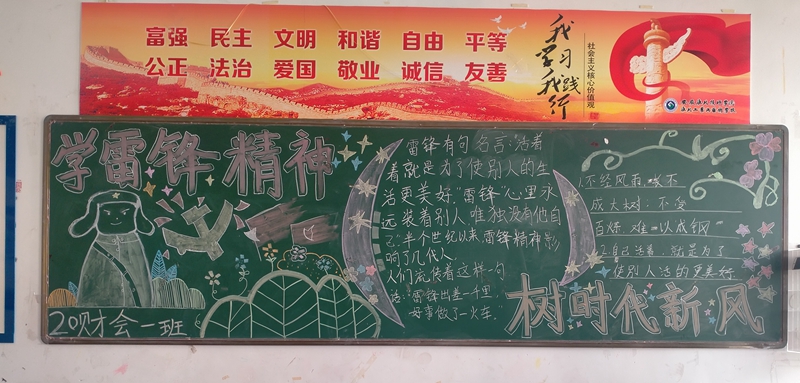 富强 民主 文明 和谐 自由 平等
公正 法治 爱国 敬业 诚信 友善
我学习 我践行
社会主义核心价值观
学雷锋精神
20财会一班
雷锋有句名言:"活着
着就是为了使别人的生
活更美好."雷锋心里永
远装着别人唯独没有他自
己."半个世纪以来雷锋精神影
响了几代人
人们流传着这样一句
话:"雷锋出差一千里
好事做了一火车."
1.不经风雨,长不
成大树:不受
百炼难以成钢
2.自己活着,就是为了
使别人活的更美好
树时代新风